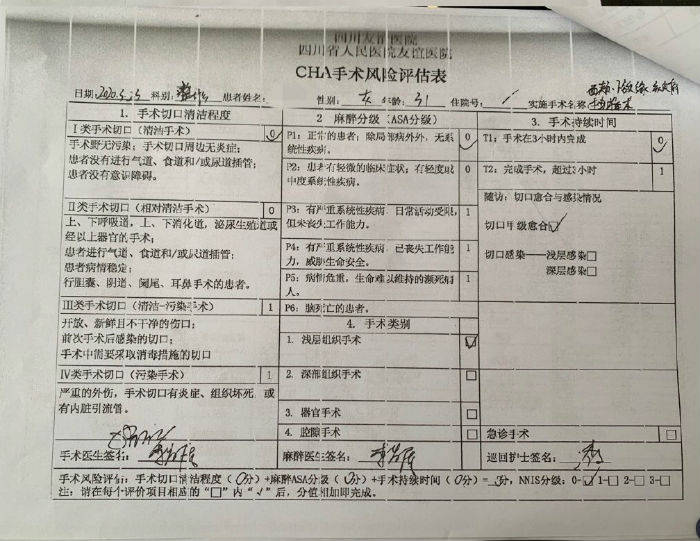 四川友谊医院
四川省人民医院友谊医院
CHA手术风险评估表
日期: 科别: 患者姓名: 性别: 女 年龄: 31 住院号: / 实施手术名称
1. 手术切口清洁程度
Ⅰ类手术切口（清洁手术） 0
手术野无污染；手术切口周边无炎症；
患者没有进行气道、食道和/或尿道插管；
患者没有意识障碍。
Ⅱ类手术切口（相对清洁手术） 0
上、下呼吸道，上、下消化道，泌尿生殖道或
经以上器官的手术；
患者进行气道、食道和/或尿道插管；
患者病情稳定；
行胆囊、阴道、阑尾、耳鼻手术的患者。
Ⅲ类手术切口（清洁-污染手术） 1
开放、新鲜且不干净的伤口；
前次手术后感染的切口；
手术中需要采取消毒措施的切口
Ⅳ类手术切口（污染手术） 1
严重的外伤，手术切口有炎症、组织坏死，或
有内脏引流管。
2 麻醉分级（ASA分级）
P1：正常的患者；除局部病外外，无系 0
统性疾病。
P2：患者有轻微的临床症状；有轻度或 0
中度系统性疾病。
P3：有严重系统性疾病，日常活动受限， 1
但未丧失工作能力。
P4：有严重系统性疾病，已丧失工作能 1
力，威胁生命安全。
P5：病情危重，生命难以维持的濒死病 1
人。
P6：脑死亡的患者。
4. 手术类别
1. 浅层组织手术 ☑
2. 深部组织手术 □
3. 器官手术 □
4. 腔隙手术 □
3. 手术持续时间
T1：手术在3小时内完成 0
T2：完成手术，超过3小时 1
随访：切口愈合与感染情况
切口甲级愈合☑
切口感染——浅层感染□
深层感染□
急诊手术 □
手术医生签名： 麻醉医生签名： 巡回护士签名：
手术风险评估：手术切口清洁程度（0分）+麻醉ASA分级（0分）+手术持续时间（0分）=0分，NNIS分级：0-☑1-□2-□3-□
注：请在每个评价项目相应的“□”内“√”后，分值相加即完成。